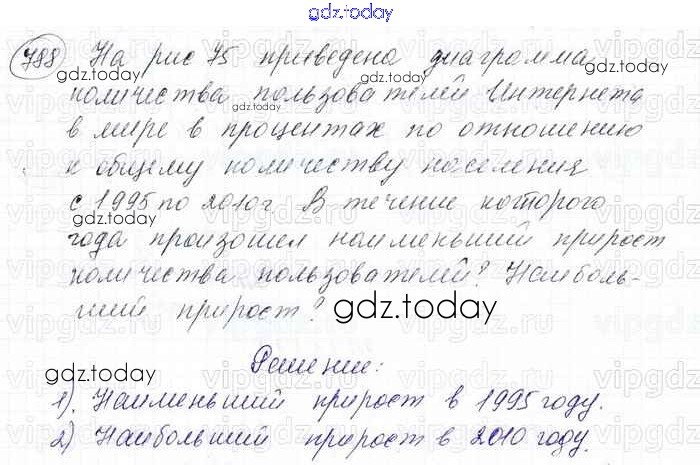 gdz.today
788 На рис 75 приведена диаграмма
количества пользователей Интернета
в мире в процентах по отношению
к общему количеству населения
с 1995 по 2010г. В течение которого
года произошел наименьший прирост
количества пользователей? Наиболь-
ший прирост?
gdz.today
Решение:
1). Наименьший прирост в 1995 году.
2) Наибольший прирост в 2010 году.